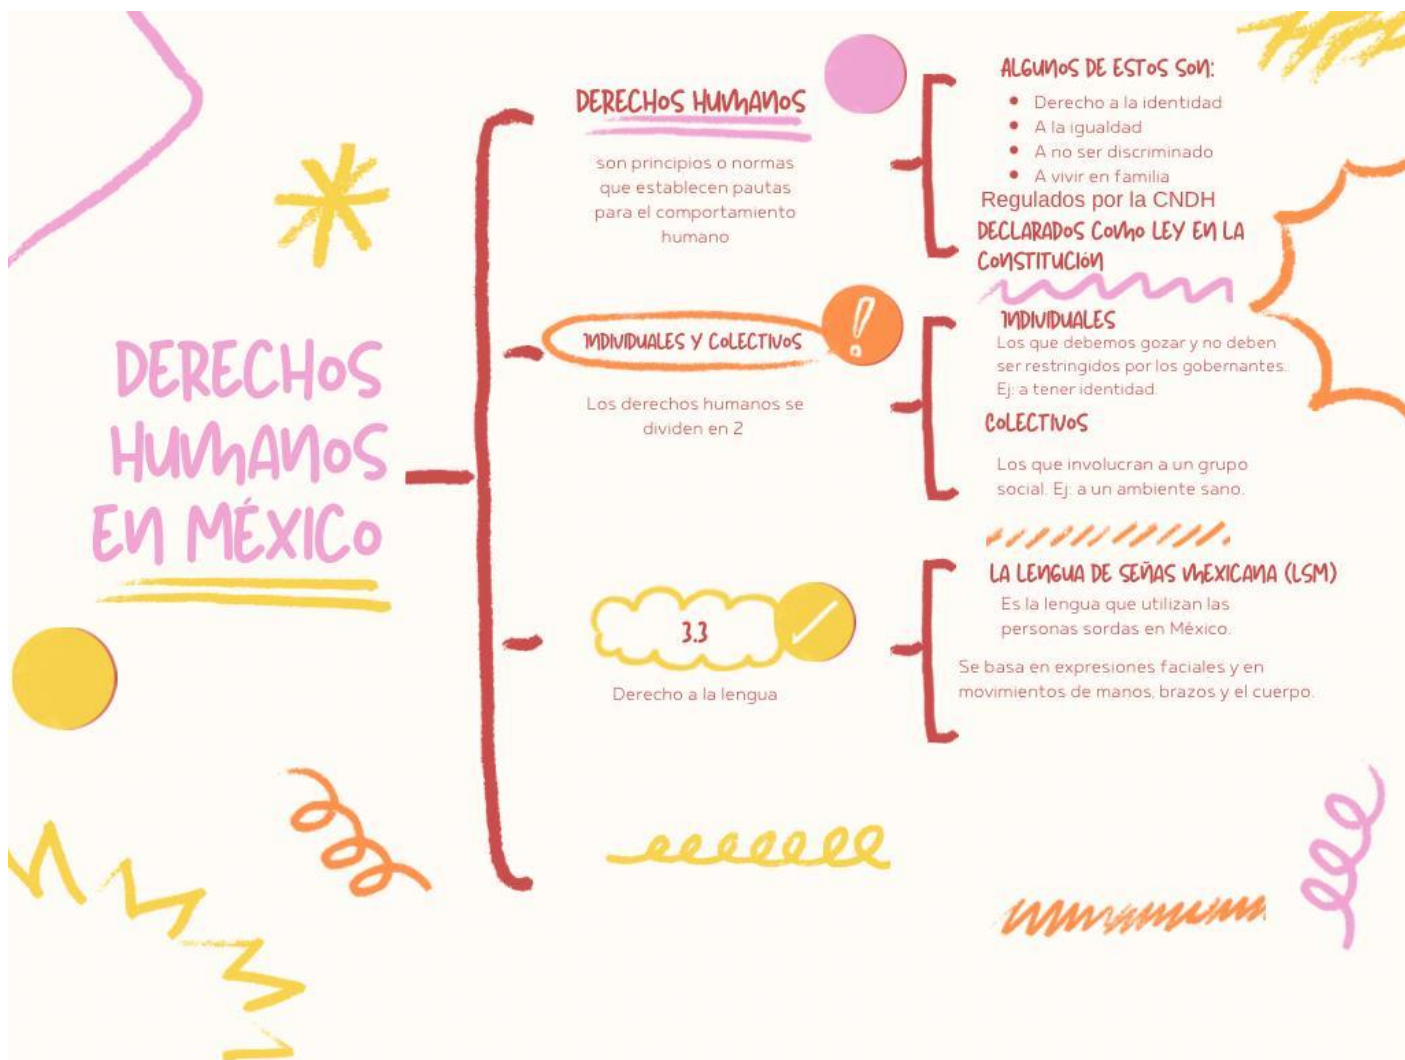 DERECHOS
HUMANOS
EN MÉXICO
DERECHOS HUMANOS
son principios o normas
que establecen pautas
para el comportamiento
humano
ALGUNOS DE ESTOS SON:
• Derecho a la identidad
• A la igualdad
• A no ser discriminado
• A vivir en familia
Regulados por la CNDH
DECLARADOS COMO LEY EN LA
CONSTITUCIÓN
INDIVIDUALES Y COLECTIVOS
Los derechos humanos se
dividen en 2
INDIVIDUALES
Los que debemos gozar y no deben
ser restringidos por los gobernantes.
Ej: a tener identidad.
COLECTIVOS
Los que involucran a un grupo
social. Ej: a un ambiente sano.
3.3
Derecho a la lengua
LA LENGUA DE SEÑAS MEXICANA (LSM)
Es la lengua que utilizan las
personas sordas en México.
Se basa en expresiones faciales y en
movimientos de manos, brazos y el cuerpo.